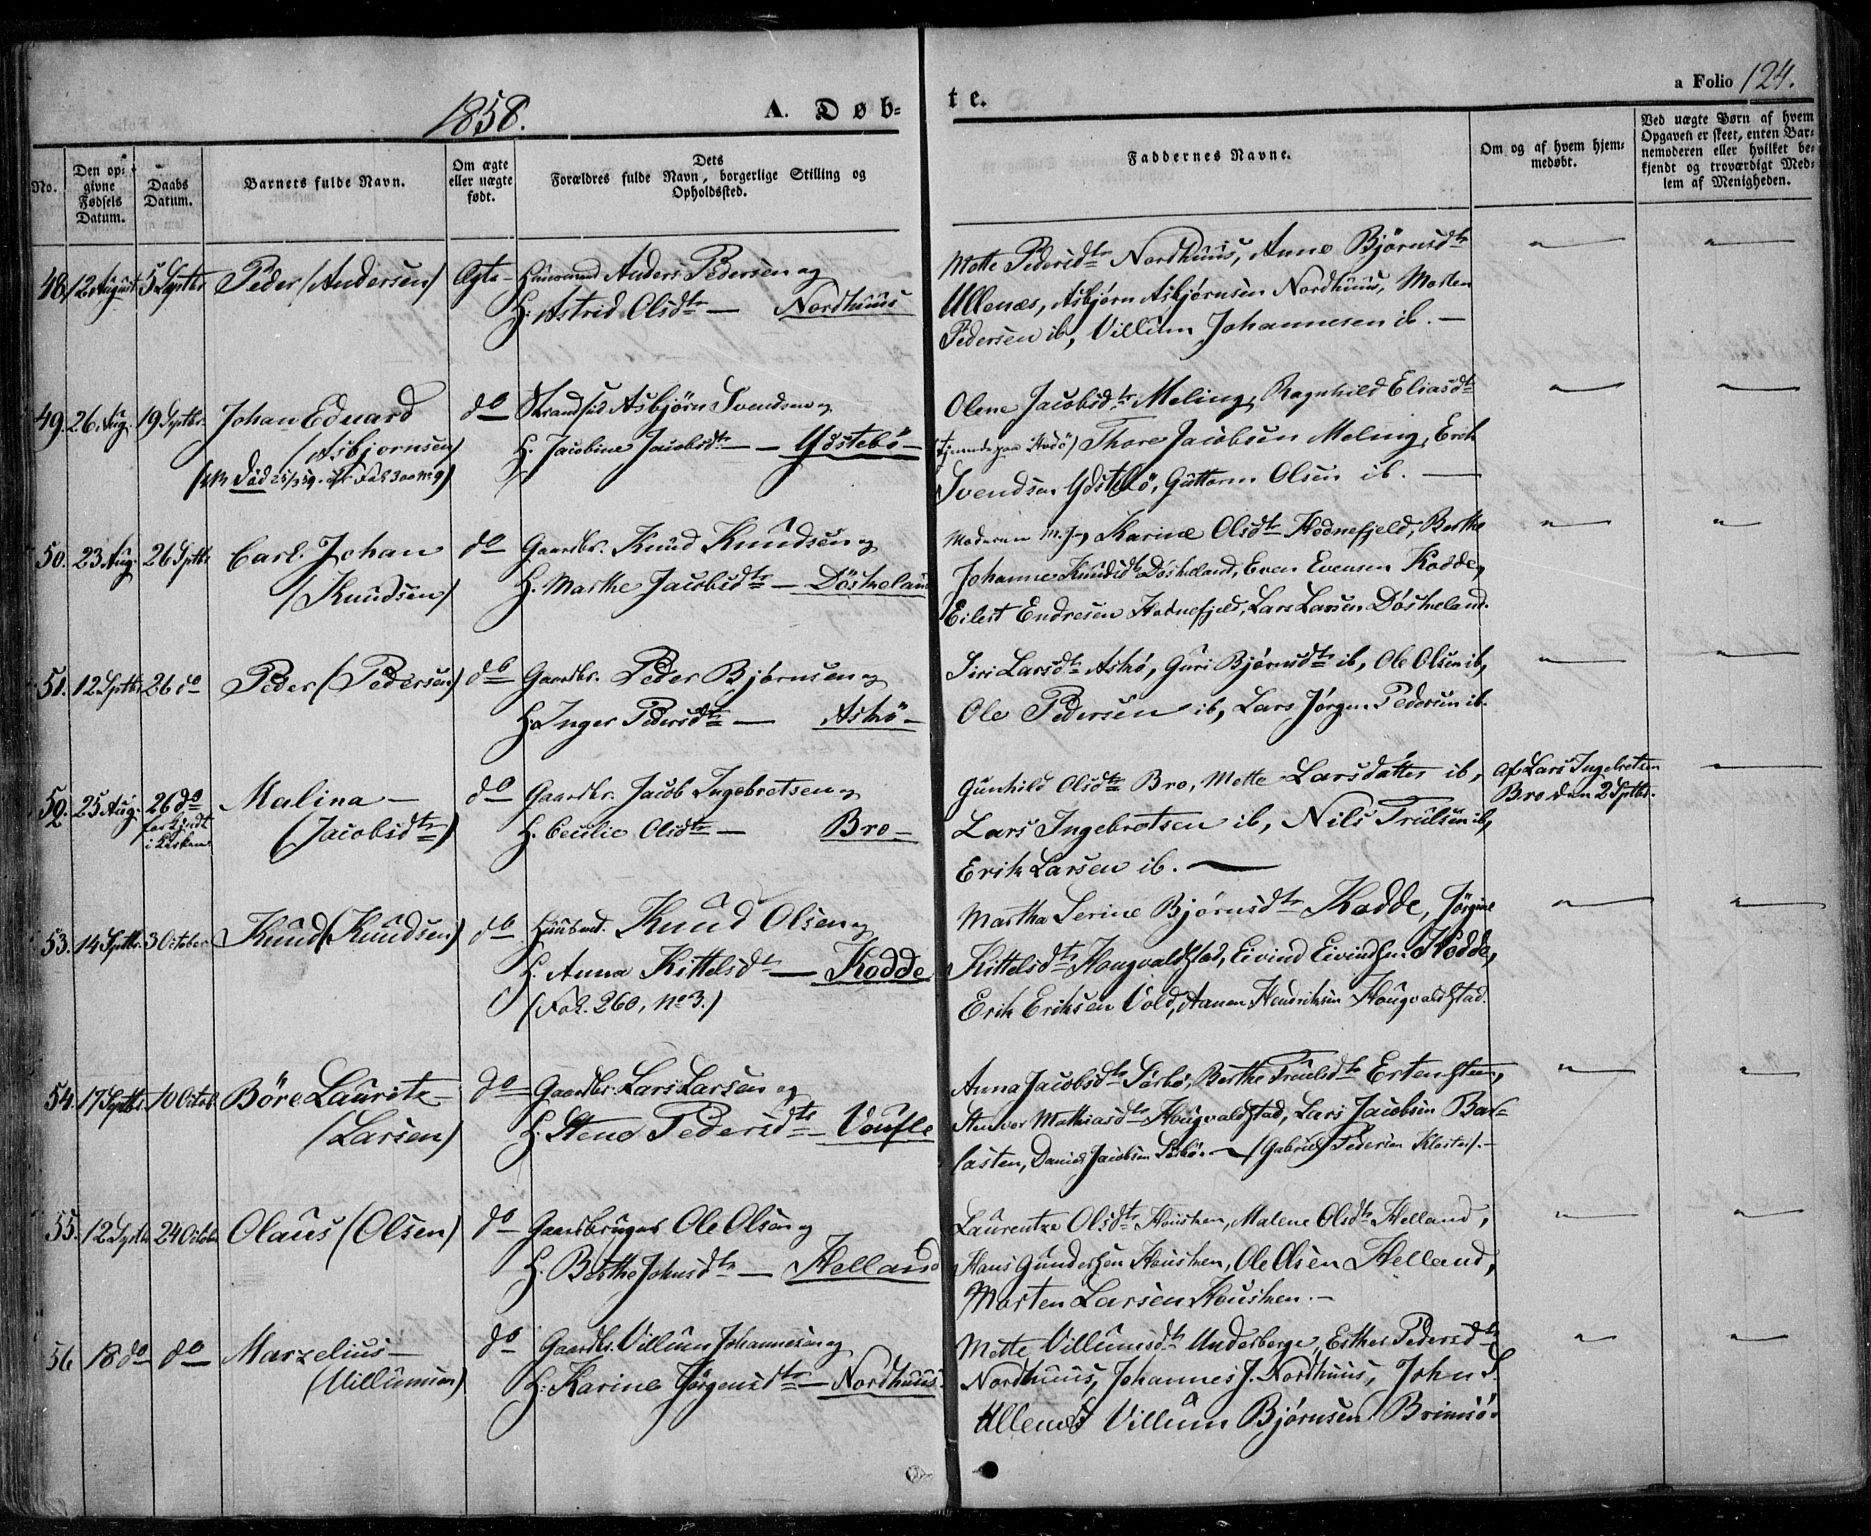 1858.
A. Døb-
te.
a Folio 124.
No.
Den op-
givne
Fødsels
Datum.
Daabs
Datum.
Barnets fulde Navn.
Om ægte
eller uægte
født.
Dets
Forældres fulde Navn, borgerlige Stilling og
Opholdssted.
Faddernes Navne.
Om og af hvem hjem-
medøbt.
Ved uægte Børn af hvem
Opgaven er skeet, enten Bar-
nemoderen eller hvilket be-
kjendt og troværdigt Med-
lem af Menigheden.
48. 12 August 5 Septbr. Peder (Andersen) Ægte - Huusmand Anders Pedersen og
H. Astrid Olsdtr — Nordhuus
Mette Pedersdtr Nordhuus, Anne Bjørnsdtr
Ullenæs, Asbjørn Asbjørnsen Nordhuus, Morten
Pedersen ib, Villum Johannesen ib. —
49. 26. Aug. 19 Septbr. Johan Eduard do Strandsid Asbjørn Svendsen og
(Asbjørnsen) H. Jacobine Jacobsdtr — Ydstebö —
(NB Död 25/3 59. Fol 300 No 9)
Olene Jacobsdtr Meling, Ragnhild Eliasdtr
(tjenende paa Askö) Thore Jacobsen Meling, Erik
Svendsen Ydstebö, Guttorm Olsen ib. —
50. 23 Aug. 26 Sptbr Carl Johan do Gaardbr. Knud Knudsen og
(Knudsen) H. Marthe Jacobsdtr — Döskeland
Moderen M. J. Karine Olsdtr Hodnefjeld, Berthe
Johanne Knudsdtr Döskeland, Even Evensen Kodde,
Eilert Endresen Hodnefjeld, Lars Larsen Döskeland.
51. 12 Sptbr 26 do Peder (Pedersen) do Gaardbr. Peder Bjørnsen og
H. Inger Pedersdtr — Askö —
Siri Larsdtr Askö, Guri Bjørnsdtr ib, Ole Olsen ib,
Ole Pedersen ib, Lars Jørgen Pedersen ib.
52. 25 Aug. 26 do Malina — do Gaardbr. Jacob Ingebretsen og
i Kirken (Jacobsdtr) H. Cecilie Olsdtr — Bro —
Gunhild Olsdtr Bro, Mette Larsdatter ib,
Lars Ingebretsen ib, Nils Trulsen ib,
Erik Larsen ib. —
Af Lars Ingebretsen
Bro den 2 Sptbr.
53. 14 Sptbr. 3 October Knud (Knudsen) do Huusmd. Knud Olsen og
H. Anna Kittelsdtr — Kodde
(Fol. 260, No 3.)
Martha Serine Bjørnsdtr Kodde, Jørgine
Kittelsdtr Hougvaldstad, Eivind Eivindsen Kodde,
Erik Eriksen Vold, Aanen Hendriksen Hougvaldstad.
54. 17 Sptbr. 10 Octob. Böre Lauritz — do Gaardbr. Lars Larsen og
(Larsen) H. Stene Pedersdtr — Voufle
Anna Jacobsdtr Sörbö, Berthe Truelsdtr Ertensteen,
Stenvor Mathiasdtr Hougvaldstad, Lars Jacobsen Bar-
casten, Daniel Jacobsen Sörbö. — (Gabriel Pedersen Kloster). —
55. 12 Sptbr 24 Octob. Olaus (Olsen) do Gaardbruger Ole Olsen og
H. Berthe Johnsdtr — Helland
Laurentze Olsdtr Housken, Malene Olsdtr Helland,
Hans Gundersen Housken, Ole Olsen Helland,
Morten Larsen Housken. —
56 18 do do Marzelius — do Gaardbr. Villum Johannesen og
(Villumsen) H. Karine Jørgensdtr — Nordhuus.
Mette Villumsdtr Underberge, Esther Pedersdtr
Nordhuus, Johannes J. Nordhuus, John S.
Ullenæs Villum Bjørnsen Brimsö.